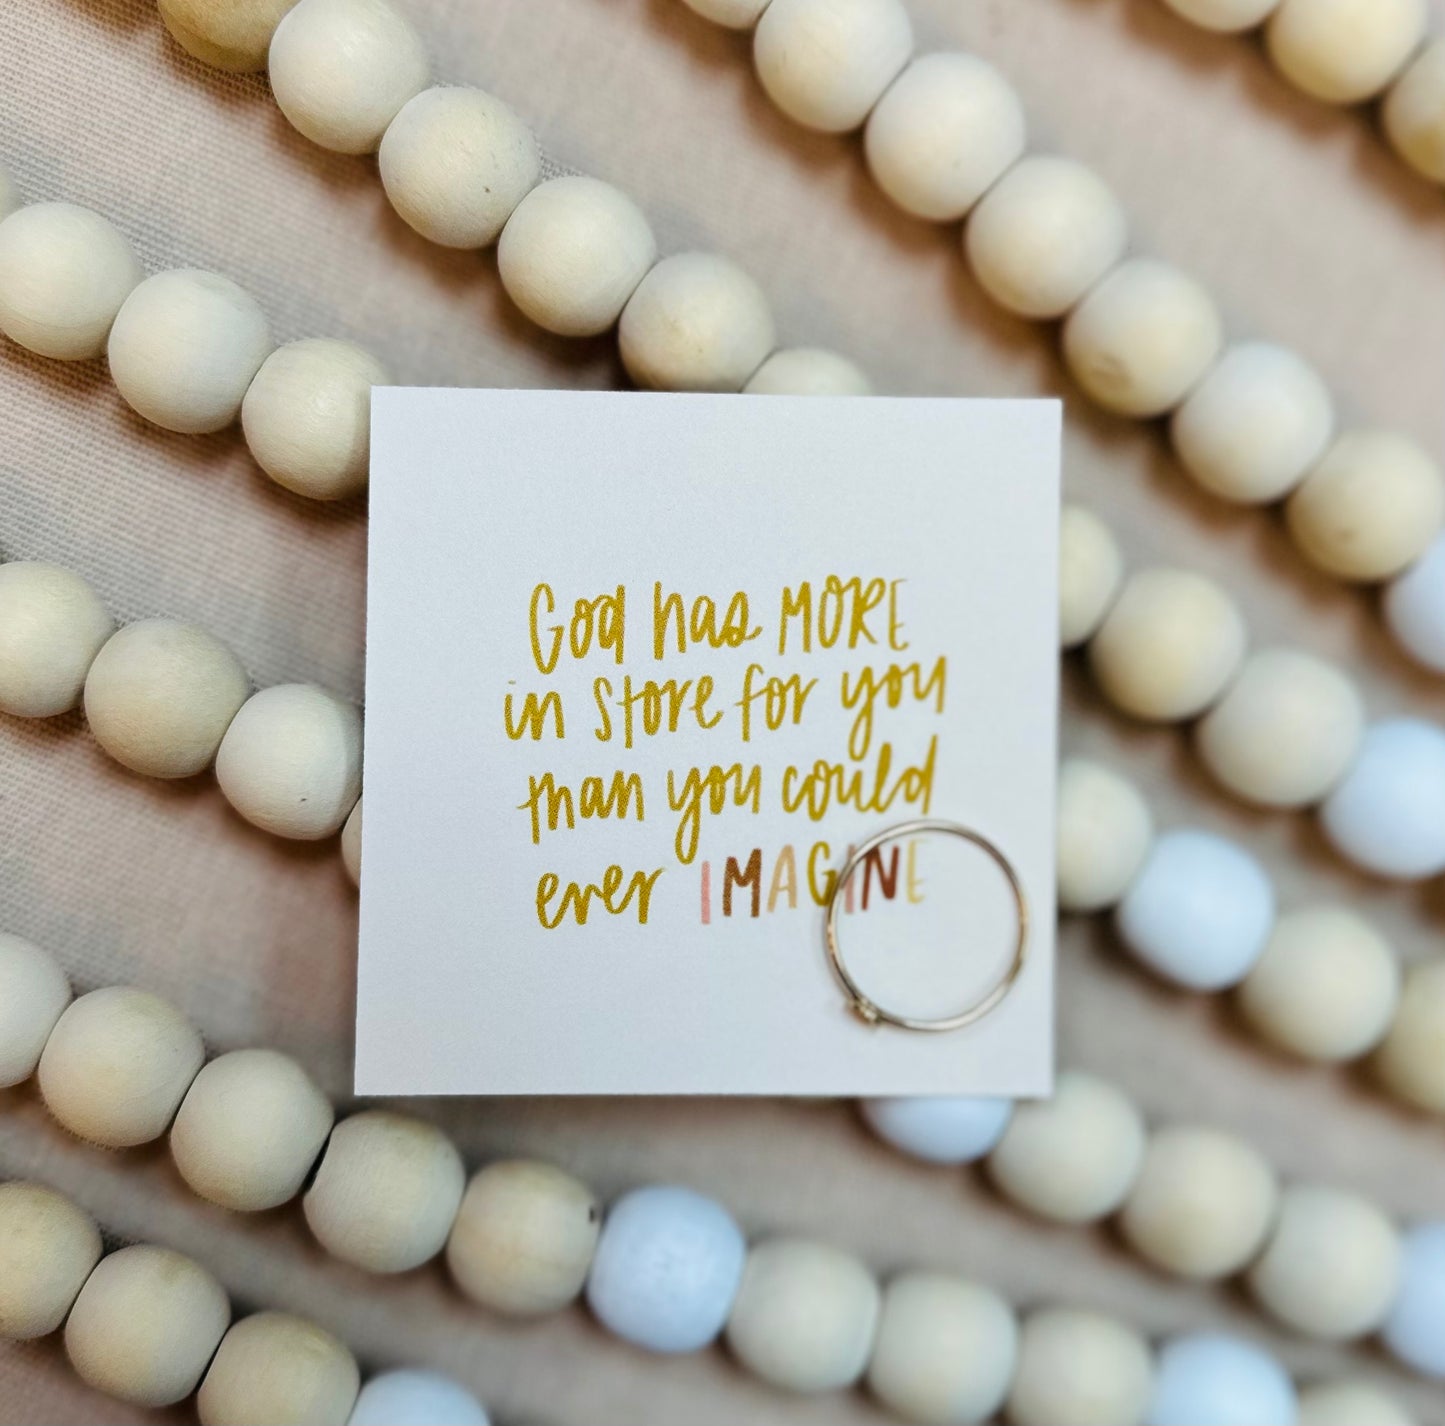 God has MORE
in store for you
than you could
ever IMAGINE